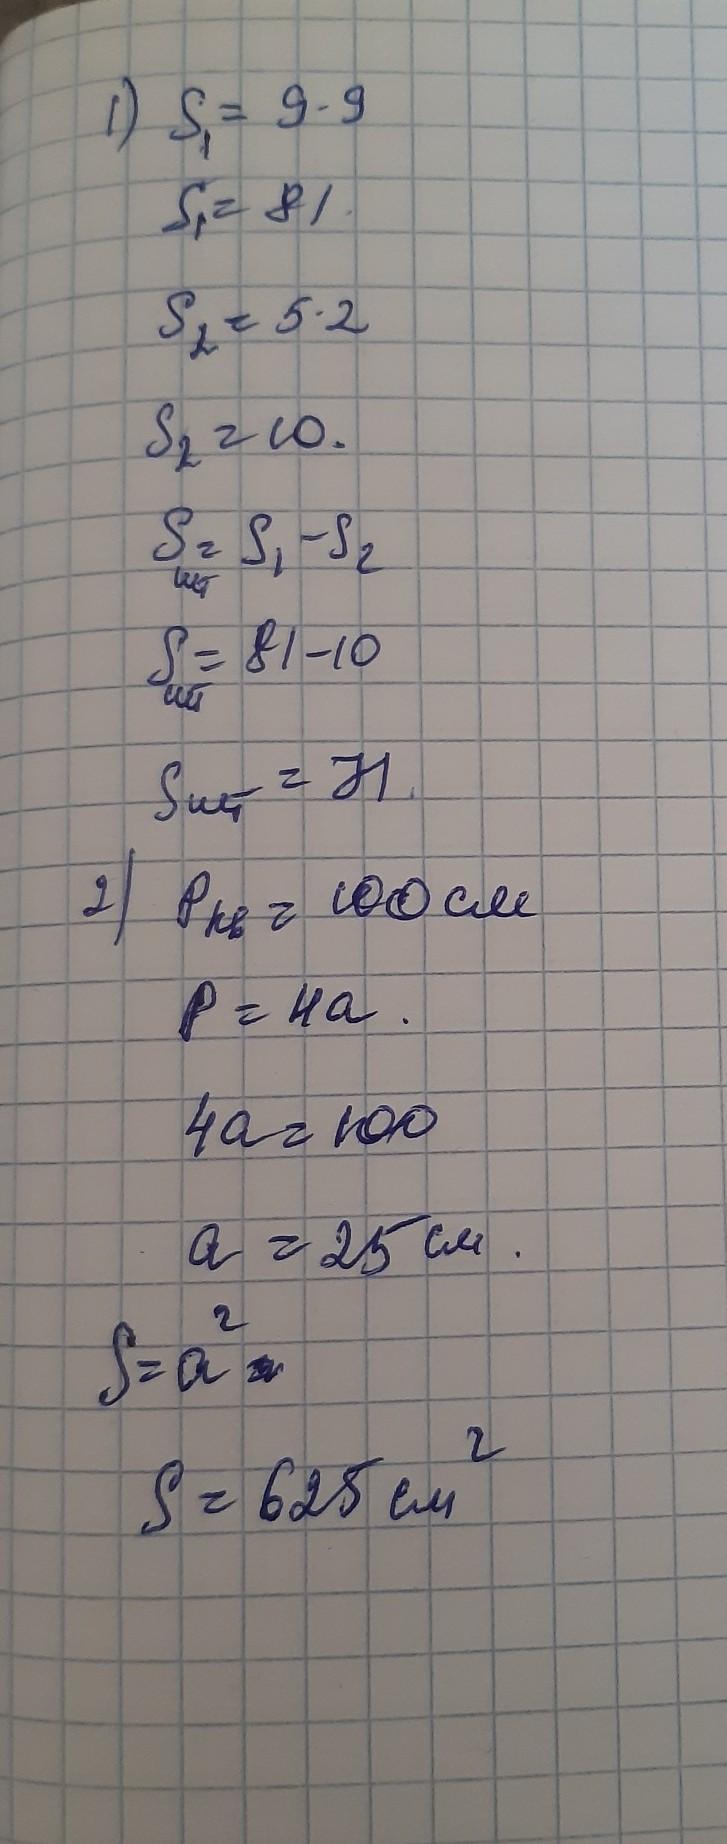 1) S₁ = 9·9
S₁ = 81.
S₂ = 5·2
S₂ = 10.
Sшт = S₁ - S₂
Sшт = 81-10
Sшт = 71.
2) Pкв = 100 см
P = 4a.
4a = 100
a = 25 см.
S = a²
S = 625 см²